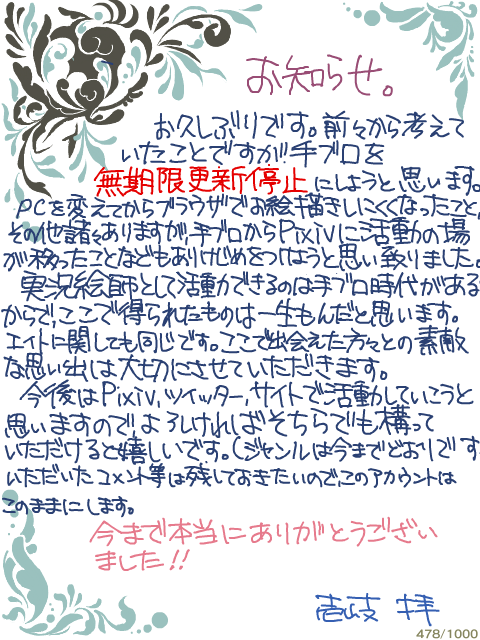 お知らせ。
お久しぶりです。前々から考えて
いたことですが!!手ブロを
無期限更新停止にしようと思います。
PCを変えてからブラウザでお絵描きしにくくなったこと、
その他諸々ありますが、手ブロからPixivに活動の場
が移ったことなどもありけじめをつけようと思い致りました。
実況絵師として活動できるのは手ブロ時代がある
からで、ここで得られたものは一生もんだと思います。
エイトに関しても同じです。ここで出会えた方々との素敵
な思い出は大切にさせていただきます。
今後はPixiv,ツイッター,サイトで活動していこうと
思いますので、よろしければそちらでも構って
いただけると嬉しいです。(ジャンルは今までどおりです
いただいたコメント等は残しておきたいので、このアカウントは
このままにします。
今まで本当にありがとうござい
ました!!
壱岐 拝
478/1000